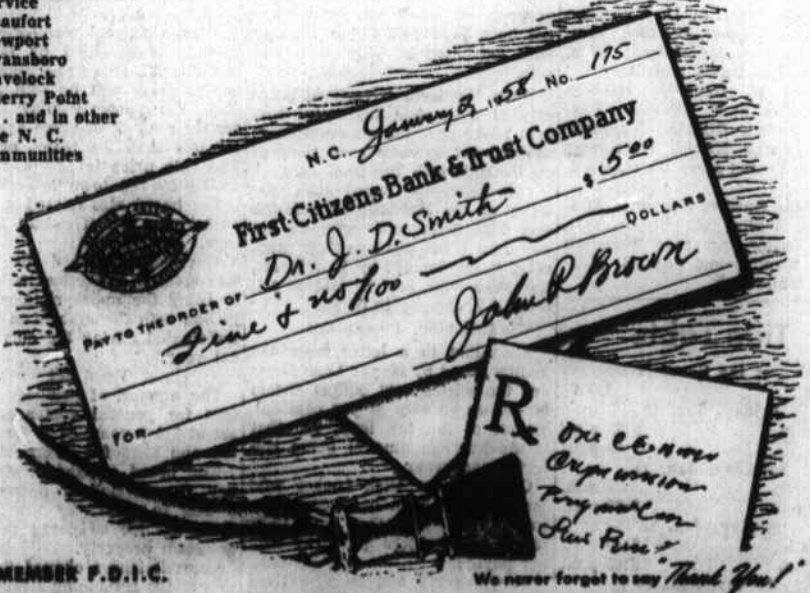 rvice
aufort
wport
ansboro
velock
erry Point
. and in other
e N. C.
mmunities
N.C. January 2, 1958 No. 175
First-Citizens Bank & Trust Company
PAY TO THE ORDER OF Dr. J. D. Smith $ 5.00
Five & no/100 DOLLARS
John R Brown
FOR
Rx
MEMBER F.D.I.C.
We never forget to say "Thank You!"